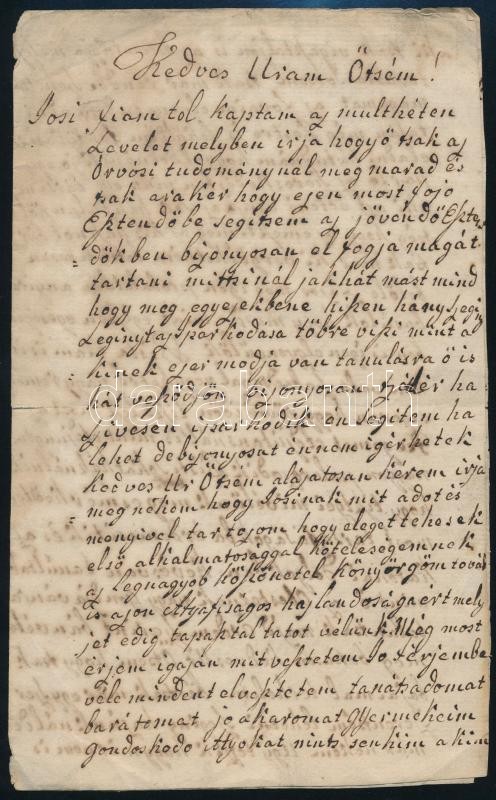 Kedves Uram Ötsém!
Josi fiam tol kaptam az multhéten
Levelet melyben irja hogy ő tsak az
Orvosi tudománynál meg marad és
tsak ara kér hogy ezen most fojo
Esztendőbe segitsem az jövendő Eszten
dőkben bizonyosan el fogja magát
tartani mit tsinál jak hát mást mind
hogy meg egyezek bene hiszen hány szegin
Leginty az szparkodása többre viszi mint a
kinek ezer modja van tanulásra ő is
hát veszödjön bizonyosan tzélér ha
szivesen iszparkodik én segitem ha
lehet de bizonyosat én nem igérhetek
kedves Ur Ötsém alázatosan kérem irja
meg nékem hogy Josinak mit adot és
menyivel tartozom hogy eleget tehesek
első alkalmatosággal köteleségemnek
az legnagyob köszönetel könyörgöm továb
is azon Atyafiságos hajlandoságaért mely
jet edig tapasztaltatot velünk Még most
érzem igazán mit vesztetem jo férjembe
véle mindent elvesztetem tanátsadomat
barátomat jo akaromat gyermekeim
gondoskodo Atyokat nints senkim a kim
darabanth